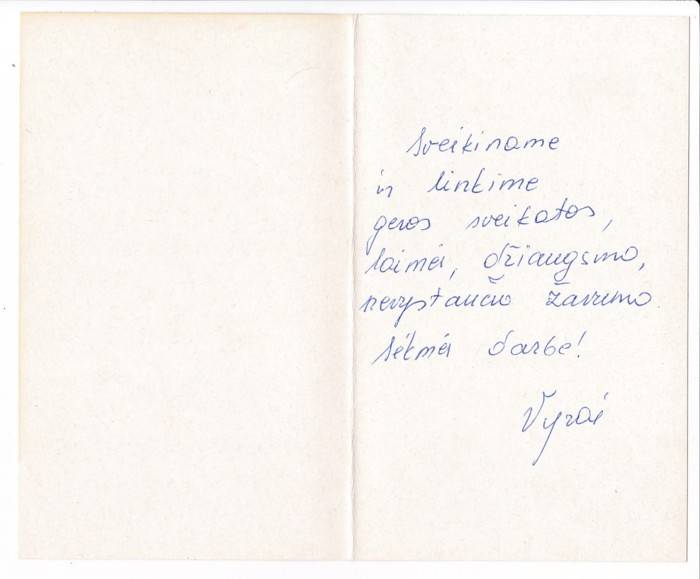 Sveikiname
ir linkime
geros sveikatos,
laimės, džiaugsmo,
nevystančio žavumo
sėkmės darbe!
Vyrai